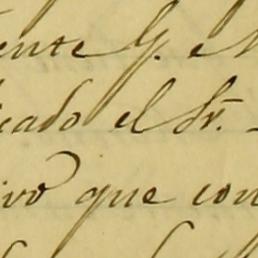 ente G. e
icado el Sr.
ivo que con